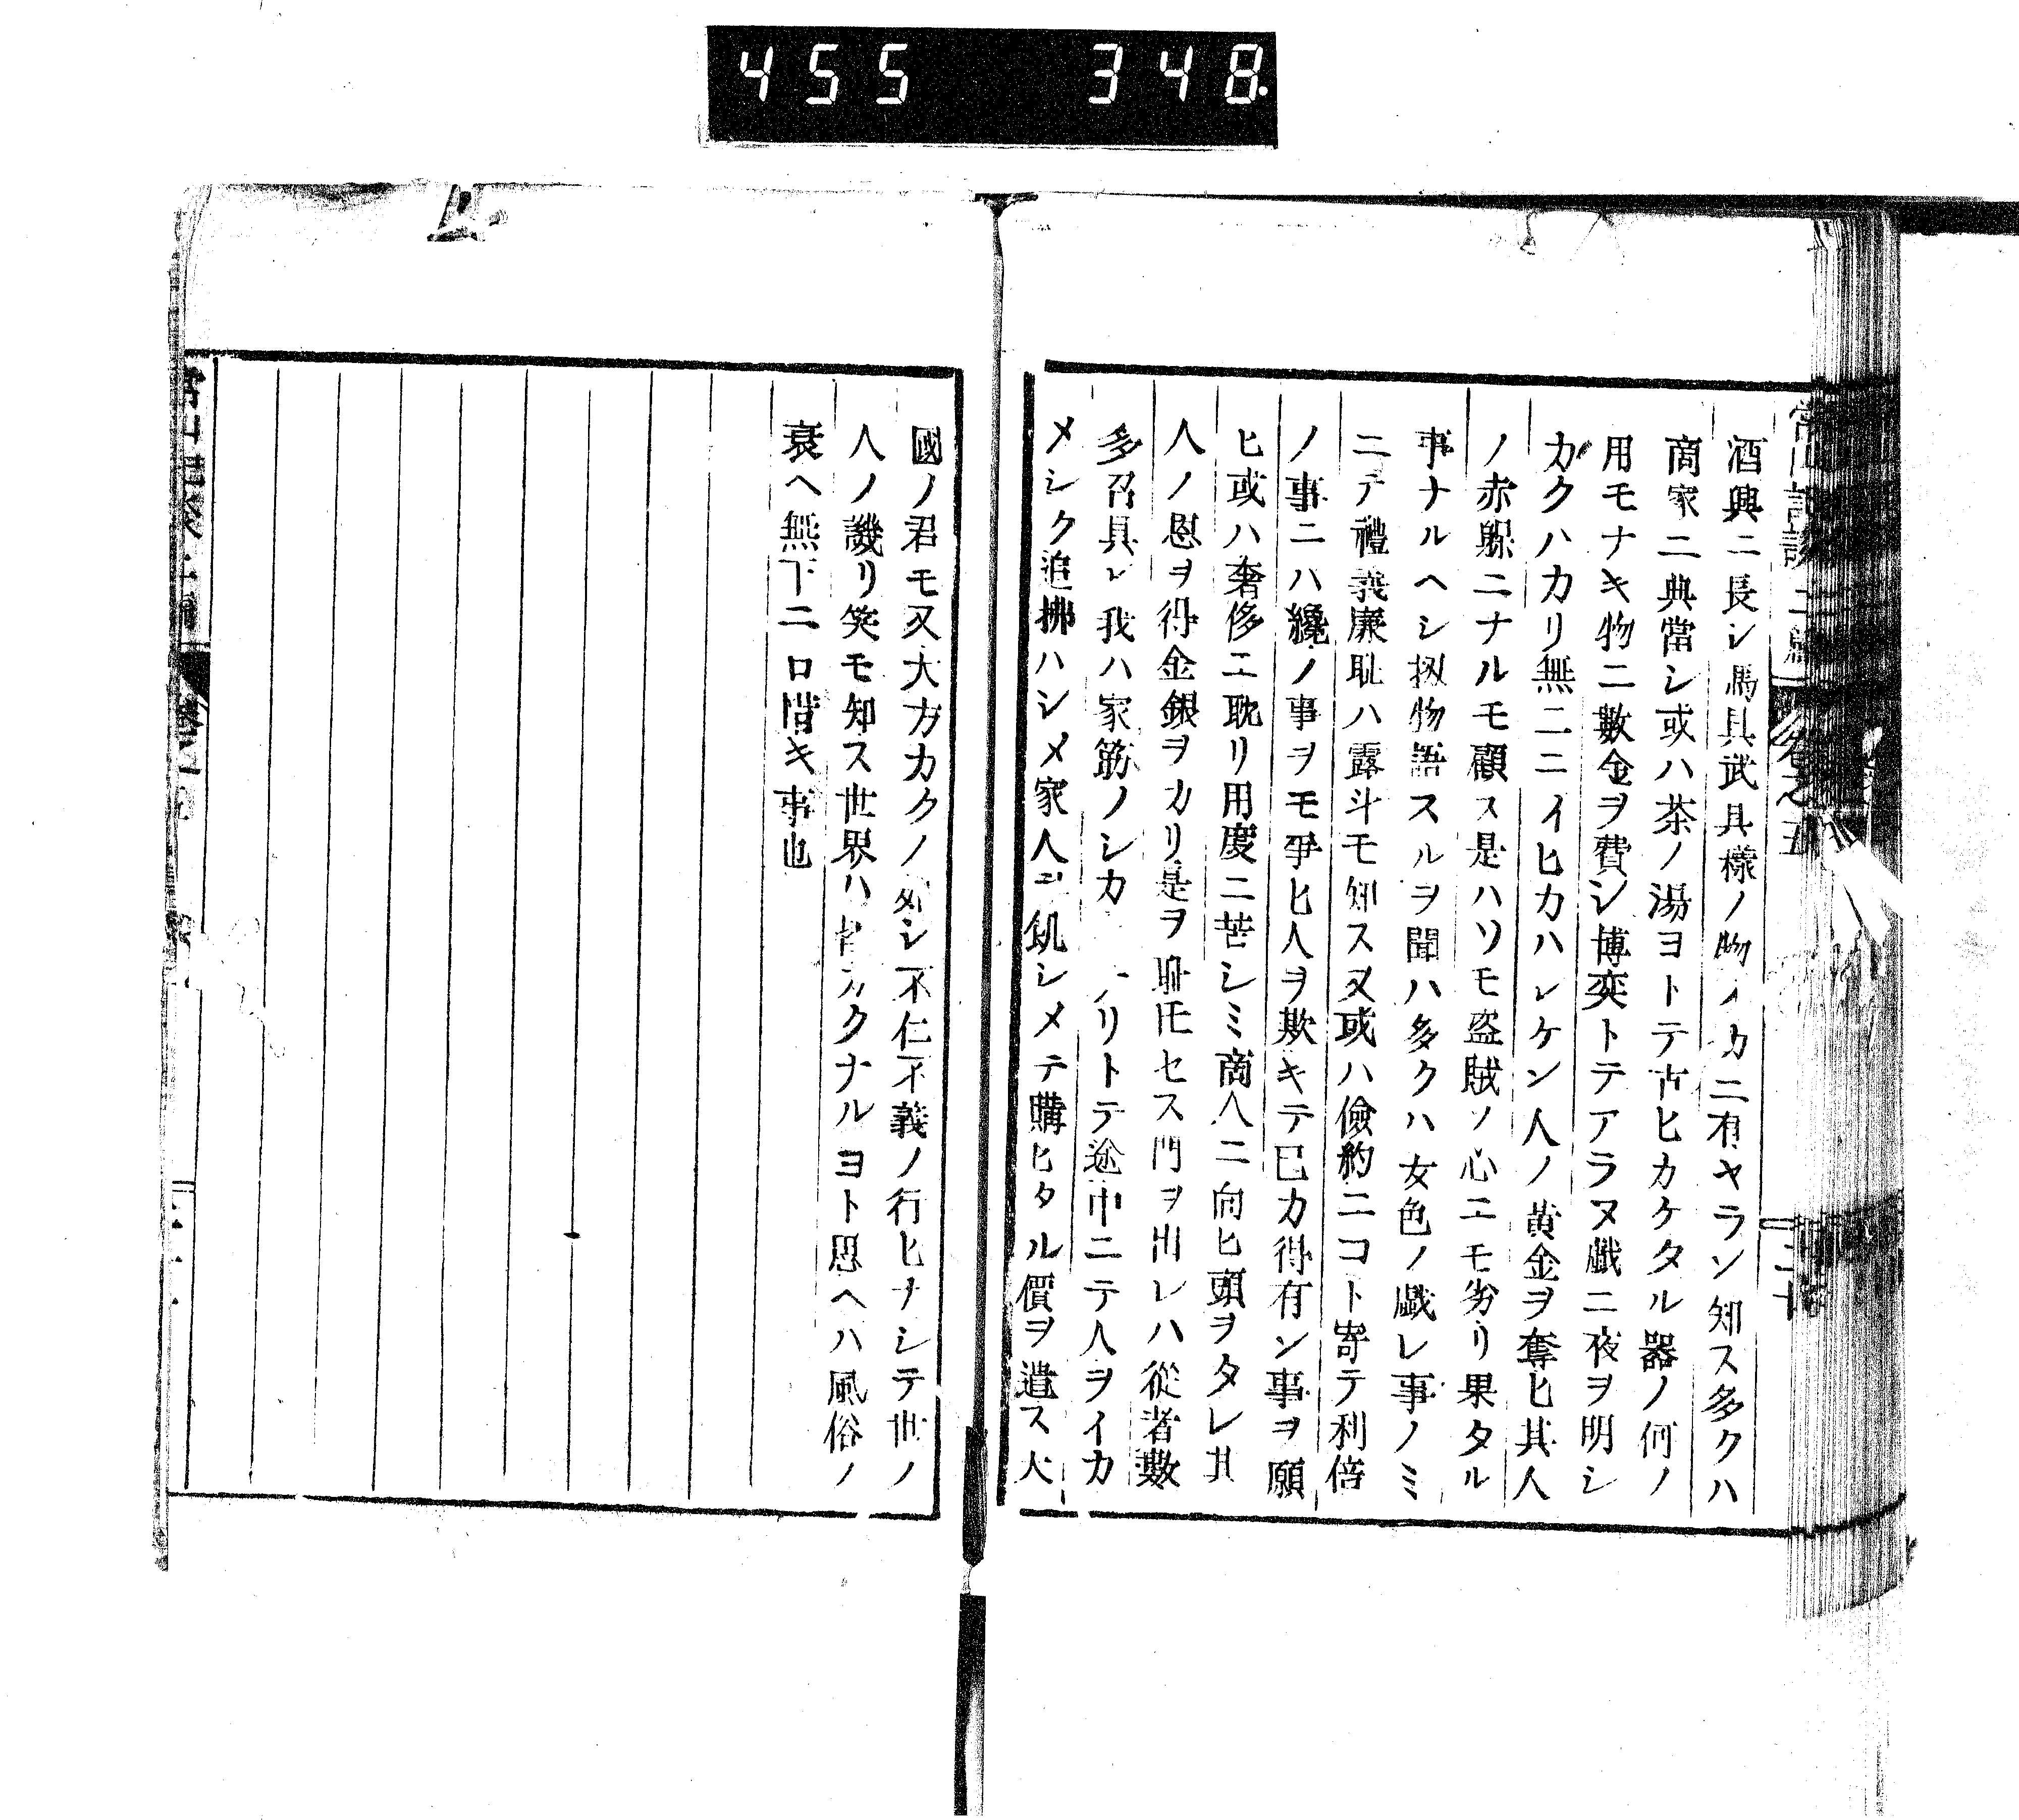 455 348.
酒興ニ長シ馬具武具樣ノ物イカニ有ヤラン知ス多クハ
商家ニ典當シ或ハ茶ノ湯ヨトテ古ヒカケタル器ノ何ノ
用モナキ物ニ數金ヲ費シ博奕トテアラヌ戲ニ夜ヲ明シ
カクハカリ無二ニイヒカハレケン人ノ黄金ヲ奪ヒ其人
ノ赤躶ニナルモ顧ス是ハソモ盜賊ノ心ニモ劣リ果タル
事ナルヘシ扨物語スルヲ聞ハ多クハ女色ノ戲レ事ノミ
ニテ禮義廉耻ハ露斗モ知ス又或ハ儉約ニコト寄テ利倍
ノ事ニハ纔ノ事ヲモ爭ヒ人ヲ欺キテ已カ得有ン事ヲ願
ヒ或ハ奢侈ニ耽リ用度ニ苦シミ商人ニ向ヒ頭ヲタレ其
人ノ恩ヲ得金銀ヲカリ是ヲ耻モセス門ヲ出レハ從者數
多召具レ我ハ家筋ノシカ リトテ途中ニテ人ヲイカ
メシク追拂ハシメ家人ヲ飢シメテ購ヒタル價ヲ遣ス大
國ノ君モ又大方カクノ如シ不仁不義ノ行ヒナシテ世ノ
人ノ譏リ笑モ知ス世界ハ皆カクナルヨト思ヘハ風俗ノ
衰ヘ無下ニ口惜キ事也